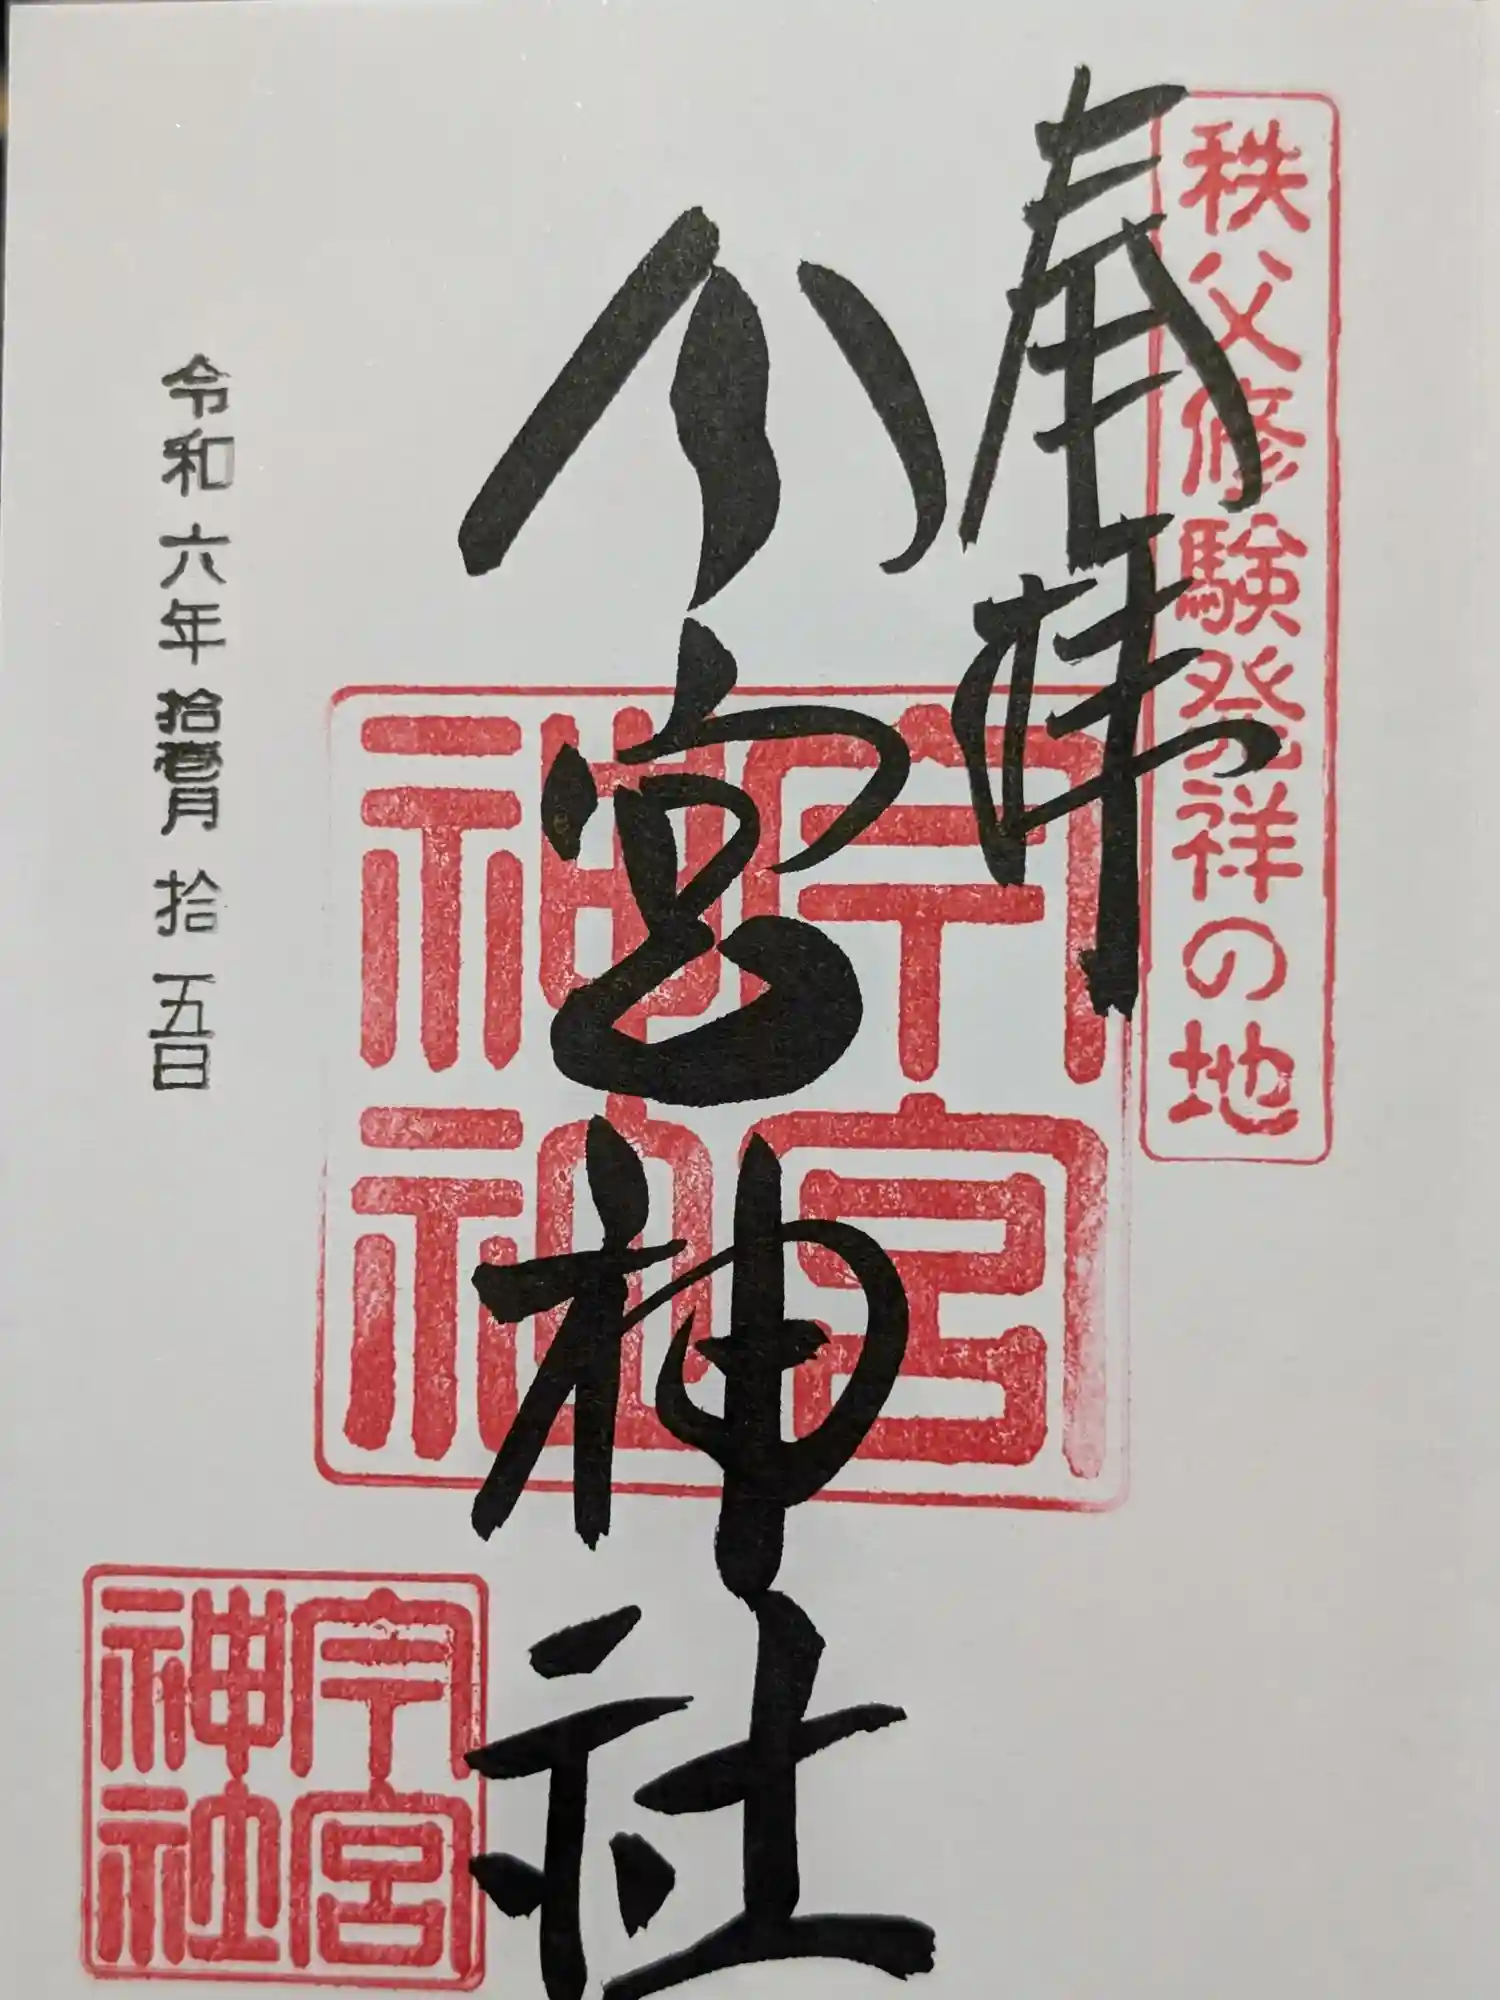 秩父修験発祥の地
奉拝
今宮神社
今宮神社
令和六年拾壹月拾五日
今宮神社